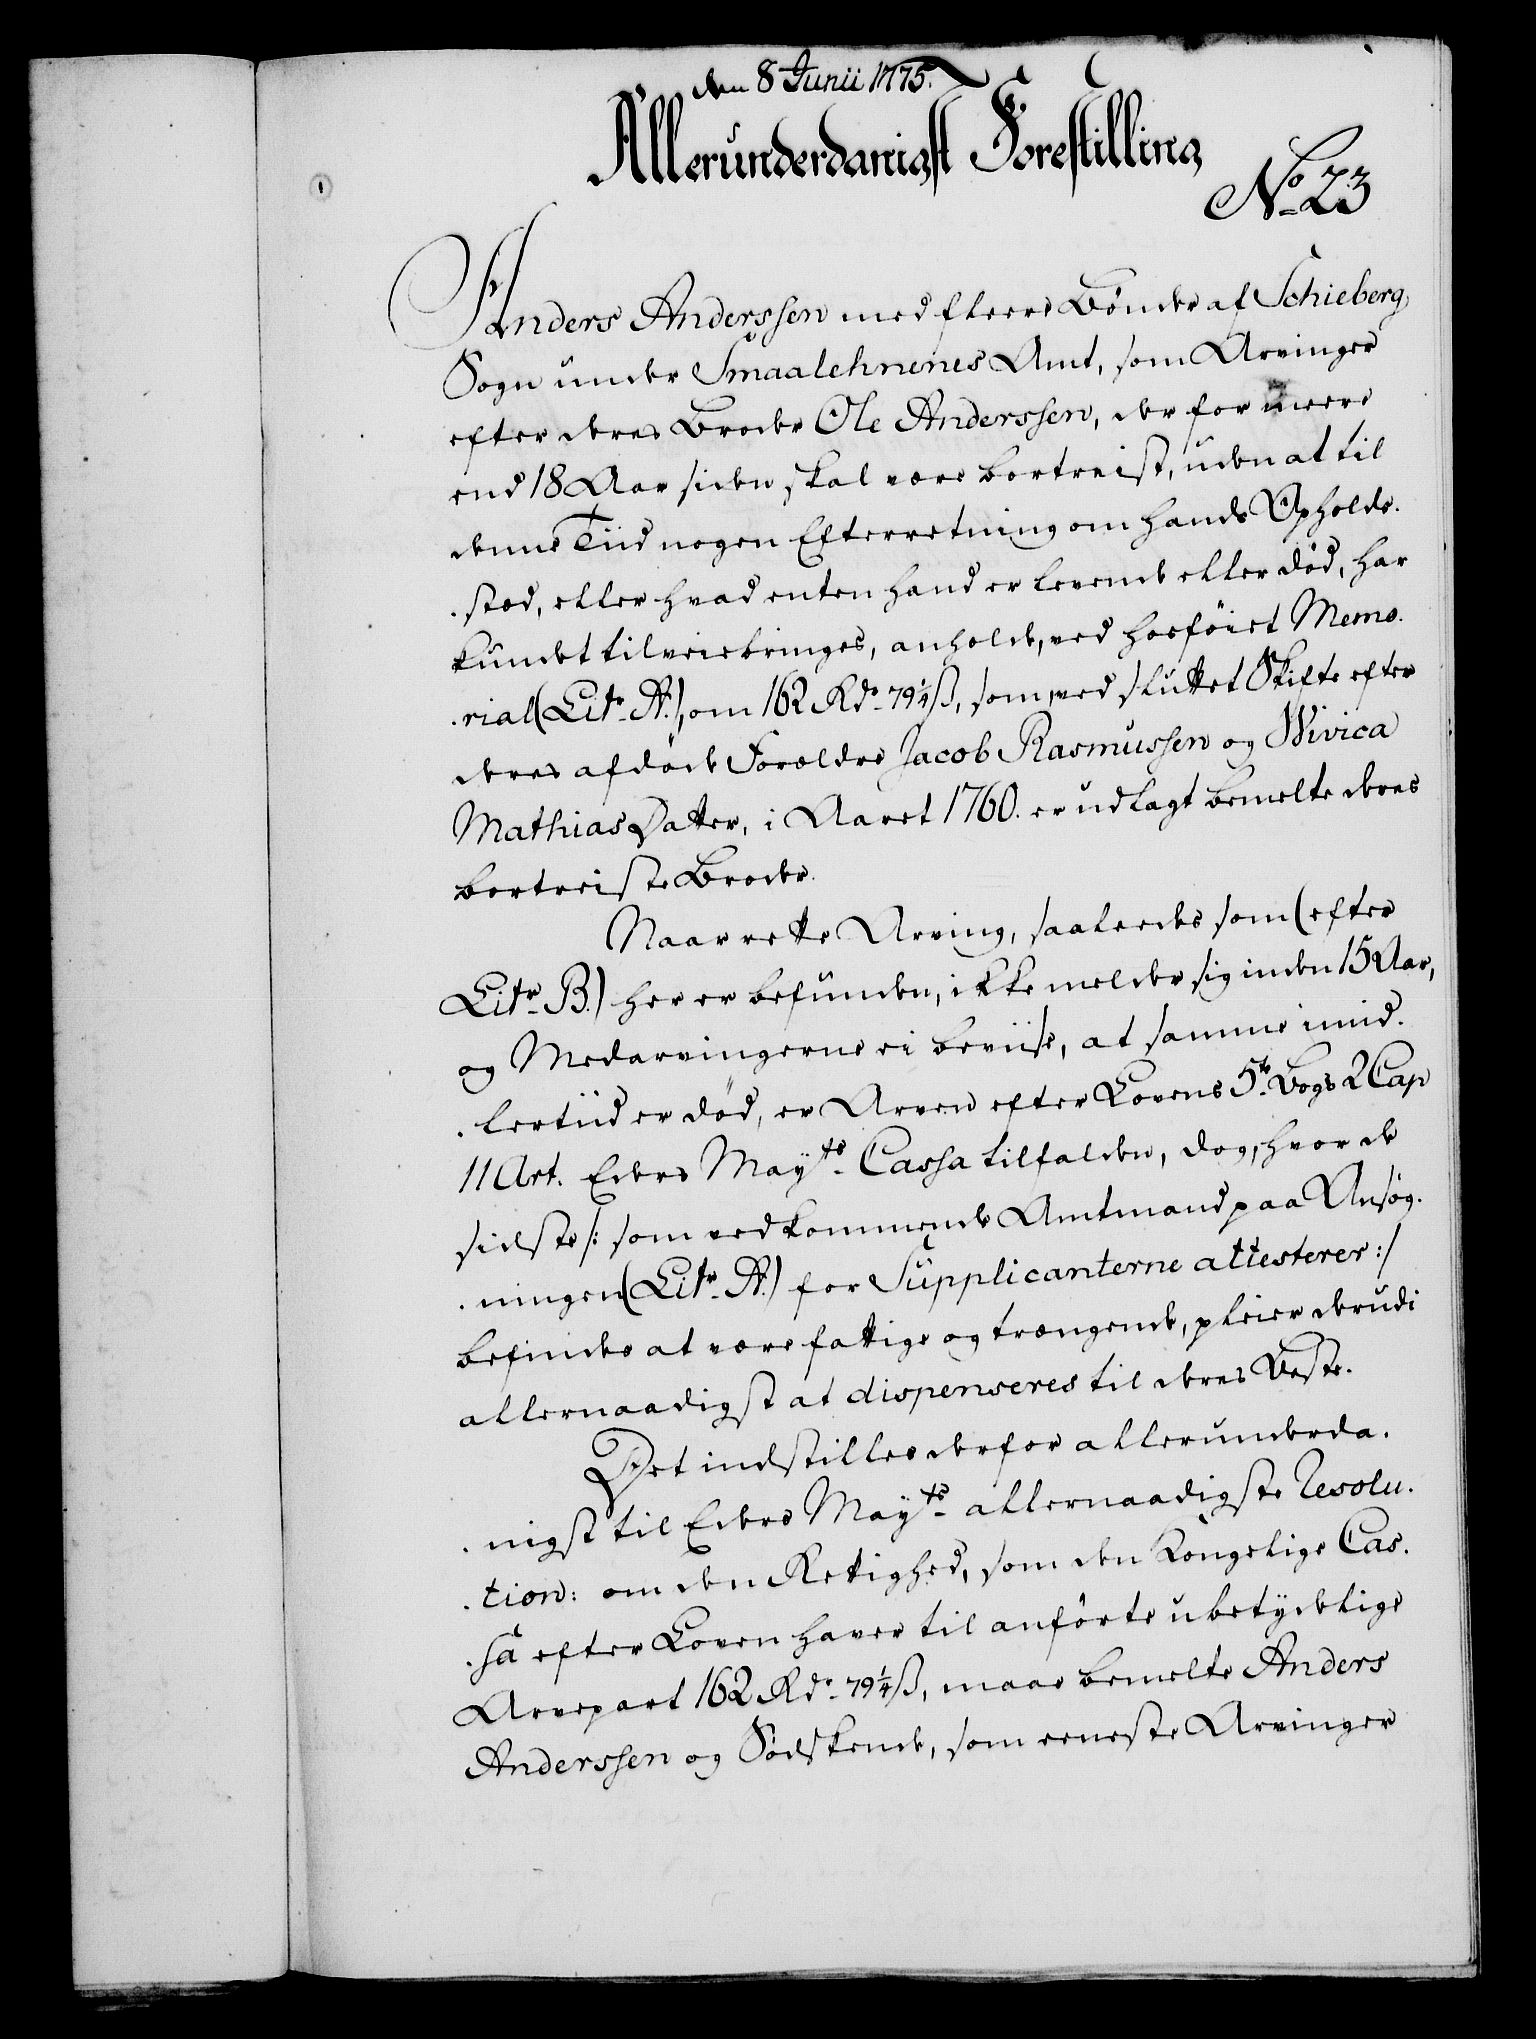 den 8 Junii 1775.
Allerunderdanigst Forestilling
No 23
Anders Anderssen med fleere Bönder af Schieberg
Sogn under Smaalehnenes Amt, som Arvinger
efter deres Broder Ole Anderssen, der for meere
end 18 Aar siden skal være bortreist, uden at til
denne Tiid nogen Efterretning om hands Opholds.
.stæd, eller hvad enten hand er levende eller död, har
kundet tilveiebringes, anholde, ved hosföiet Memo.
.rial (Litr. A.), om 162 Rdr. 79¼ ß, som, ved sluttet Skifte efter
deres afdöde Forældre Jacob Rasmussen og Wivica
Mathias Datter, i Aaret 1760. er udlagt bemelte deres
bortreiste Broder.
Naar rette Arving, saaledes som (efter
Litr. B.) her er befunden, ikke melder sig inden 15 Aar,
og Medarvingerne ei beviise, at samme imid.
.lertiid er död, er Arven efter Lovens 5te Bogs 2 Cap
11 Art. Eders Mayts. Cassa tilfalden, dog, hvor de
sidste /: som vedkommende Amtmand paa Ansög.
.ningen (Litr. A.) for Supplicanterne attesterer :/
befindes at være fattige og trængende, pleier derudi
allernaadigst at dispenseres til deres Beste.
Det indstilles derfor allerunderda.
.nigst til Eders Mayts. allernaadigste Resolu.
.tion: om den Rettighed, som den Kongelige Cas.
.sa efter Loven haver til anförte ubetydelige
Arvepart 162 Rdr. 79¼ ß, maae bemelte Anders
Anderssen og Södskende, som eeneste Arvinger